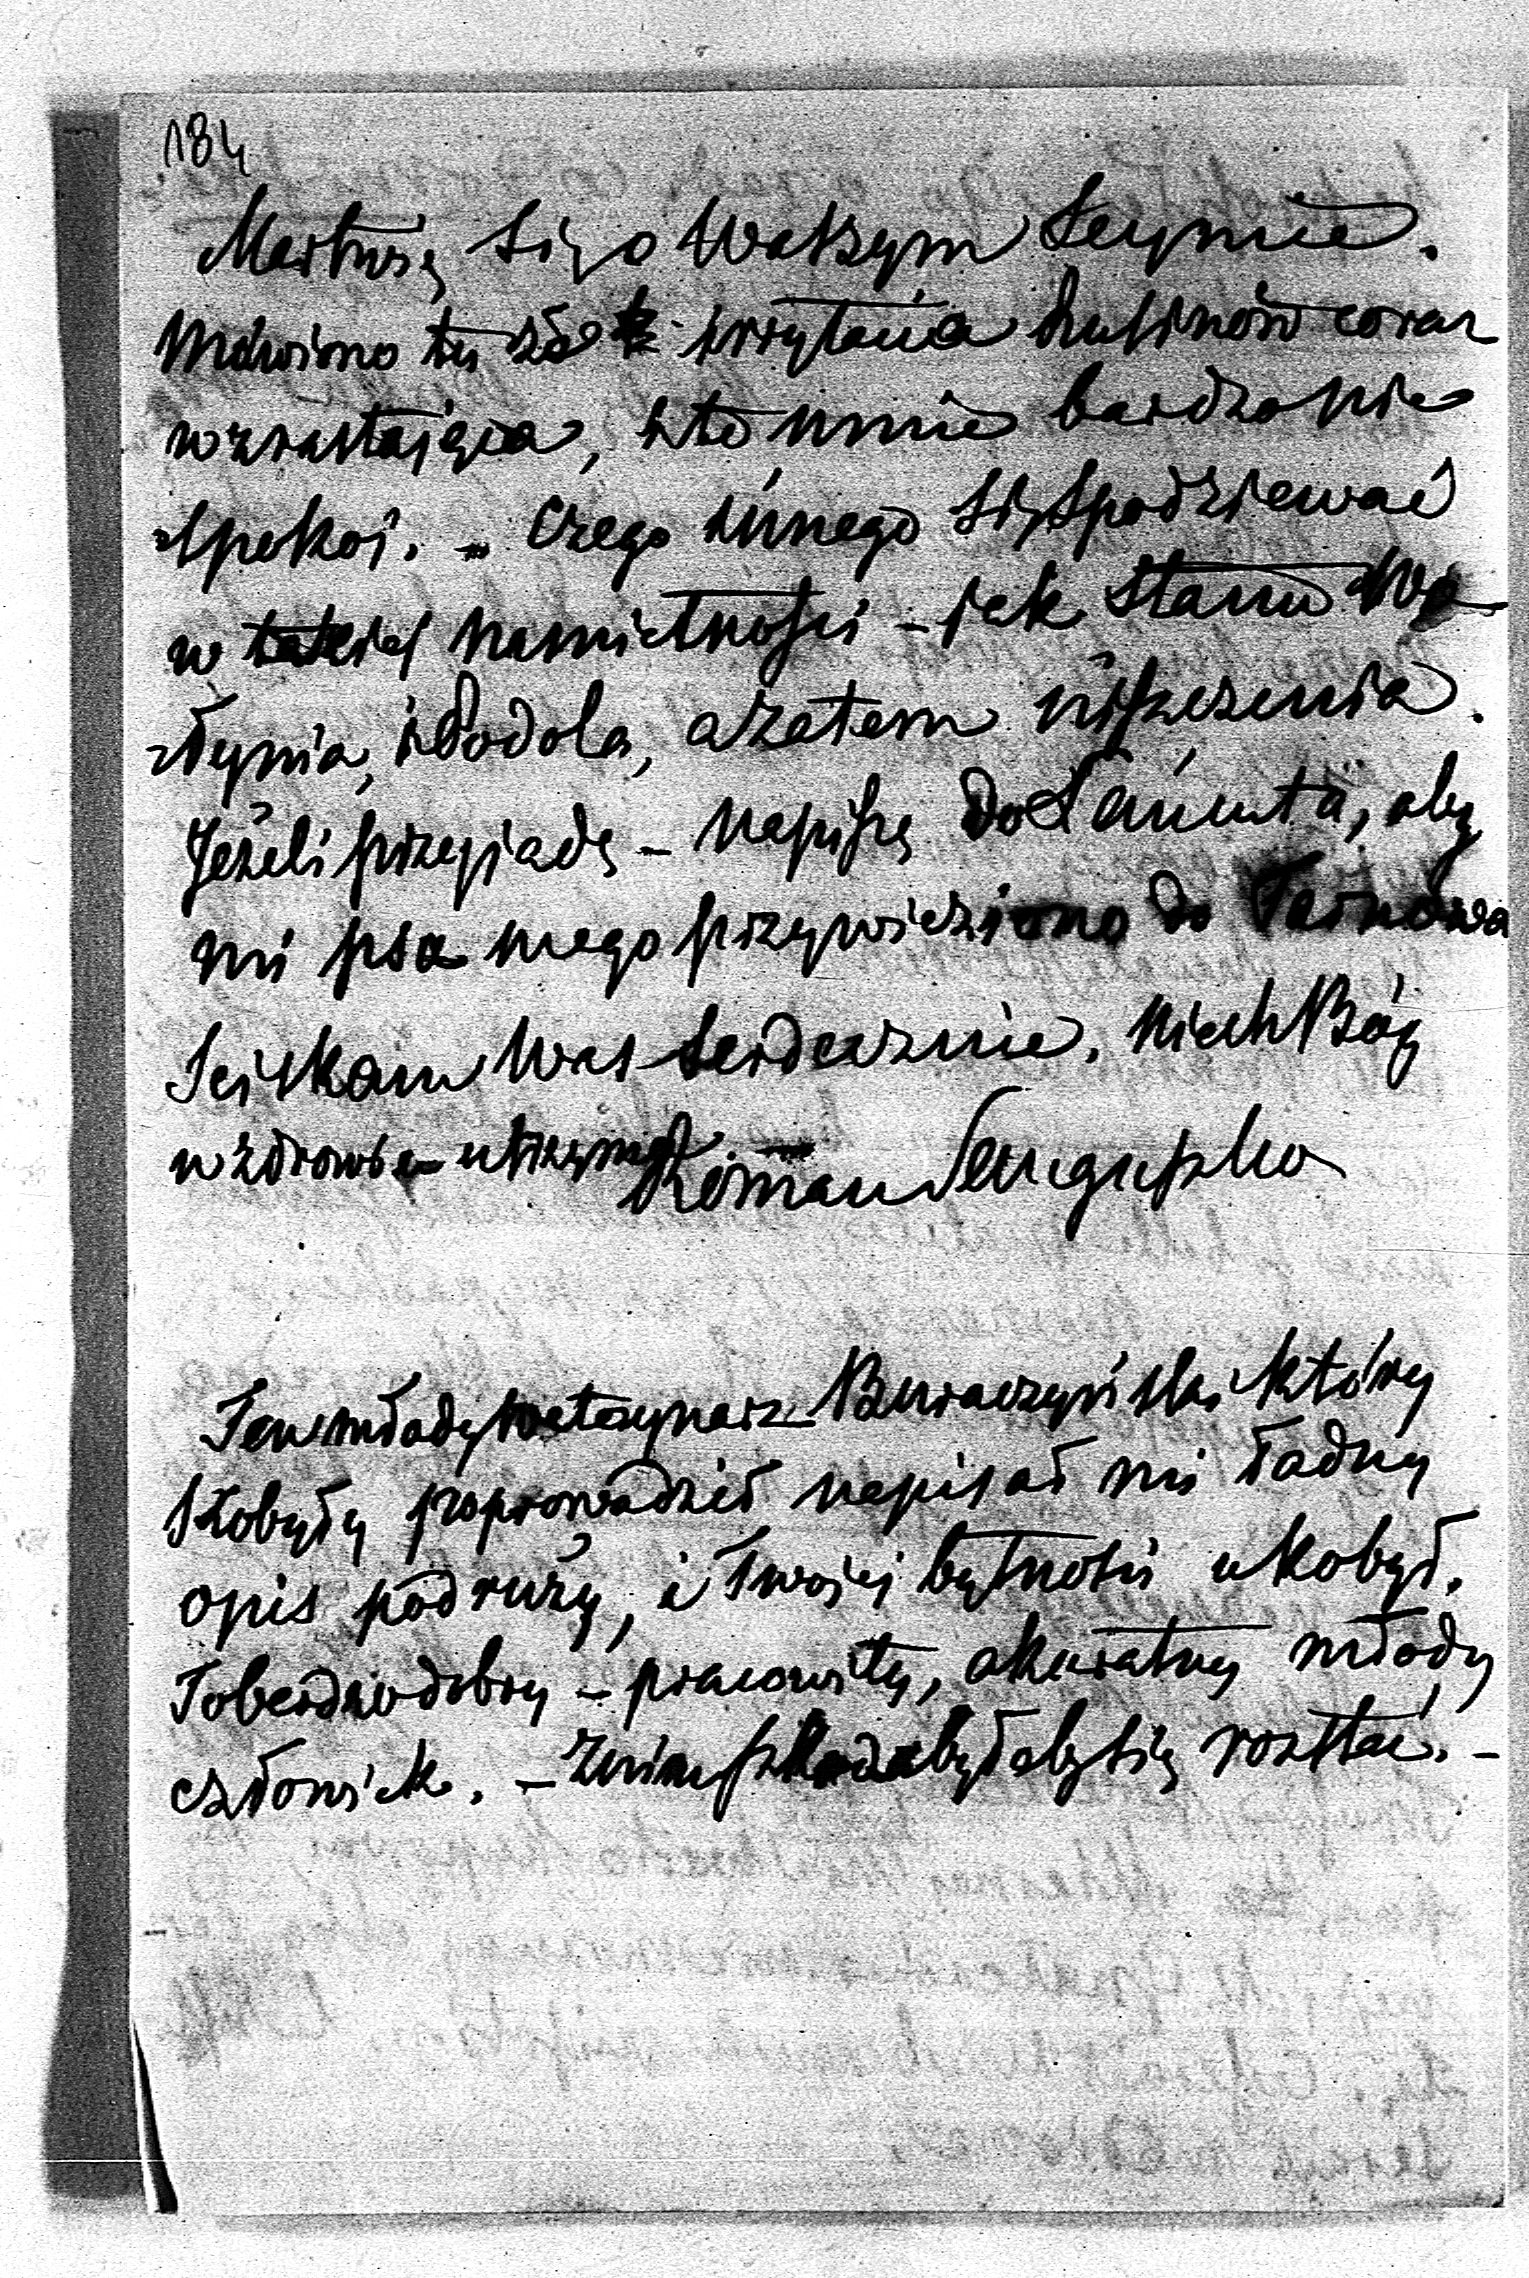 184
Martwię się o Waszym Seymie.
Mówiono tu że irrytacia Rusinów coraz
wzrastająca, k to mnie bardzo nie
spokoi. – Czego innego się spodziewać
w takiej namiętności – jak stanu Wo-
łynia, i Podola, a zatem niszczenia.
Jeżeli przyjadę – napiszę do Łańcuta, aby
mi psa mego przywieziono do Tarnowa
Sciskam Was serdecznie. Niech Bóg
w zdrowiu utrzyma. – Roman Sanguszko
Ten młody weterynarz Buraczyński który
Kobyły poprowadził napisał mi ładny
opis podruży, i swojej bytności u kobył.
To bardzo dobry – pracowity, akuratny młody
człowiek. – Z nim szkoda byłoby się rozstać. –